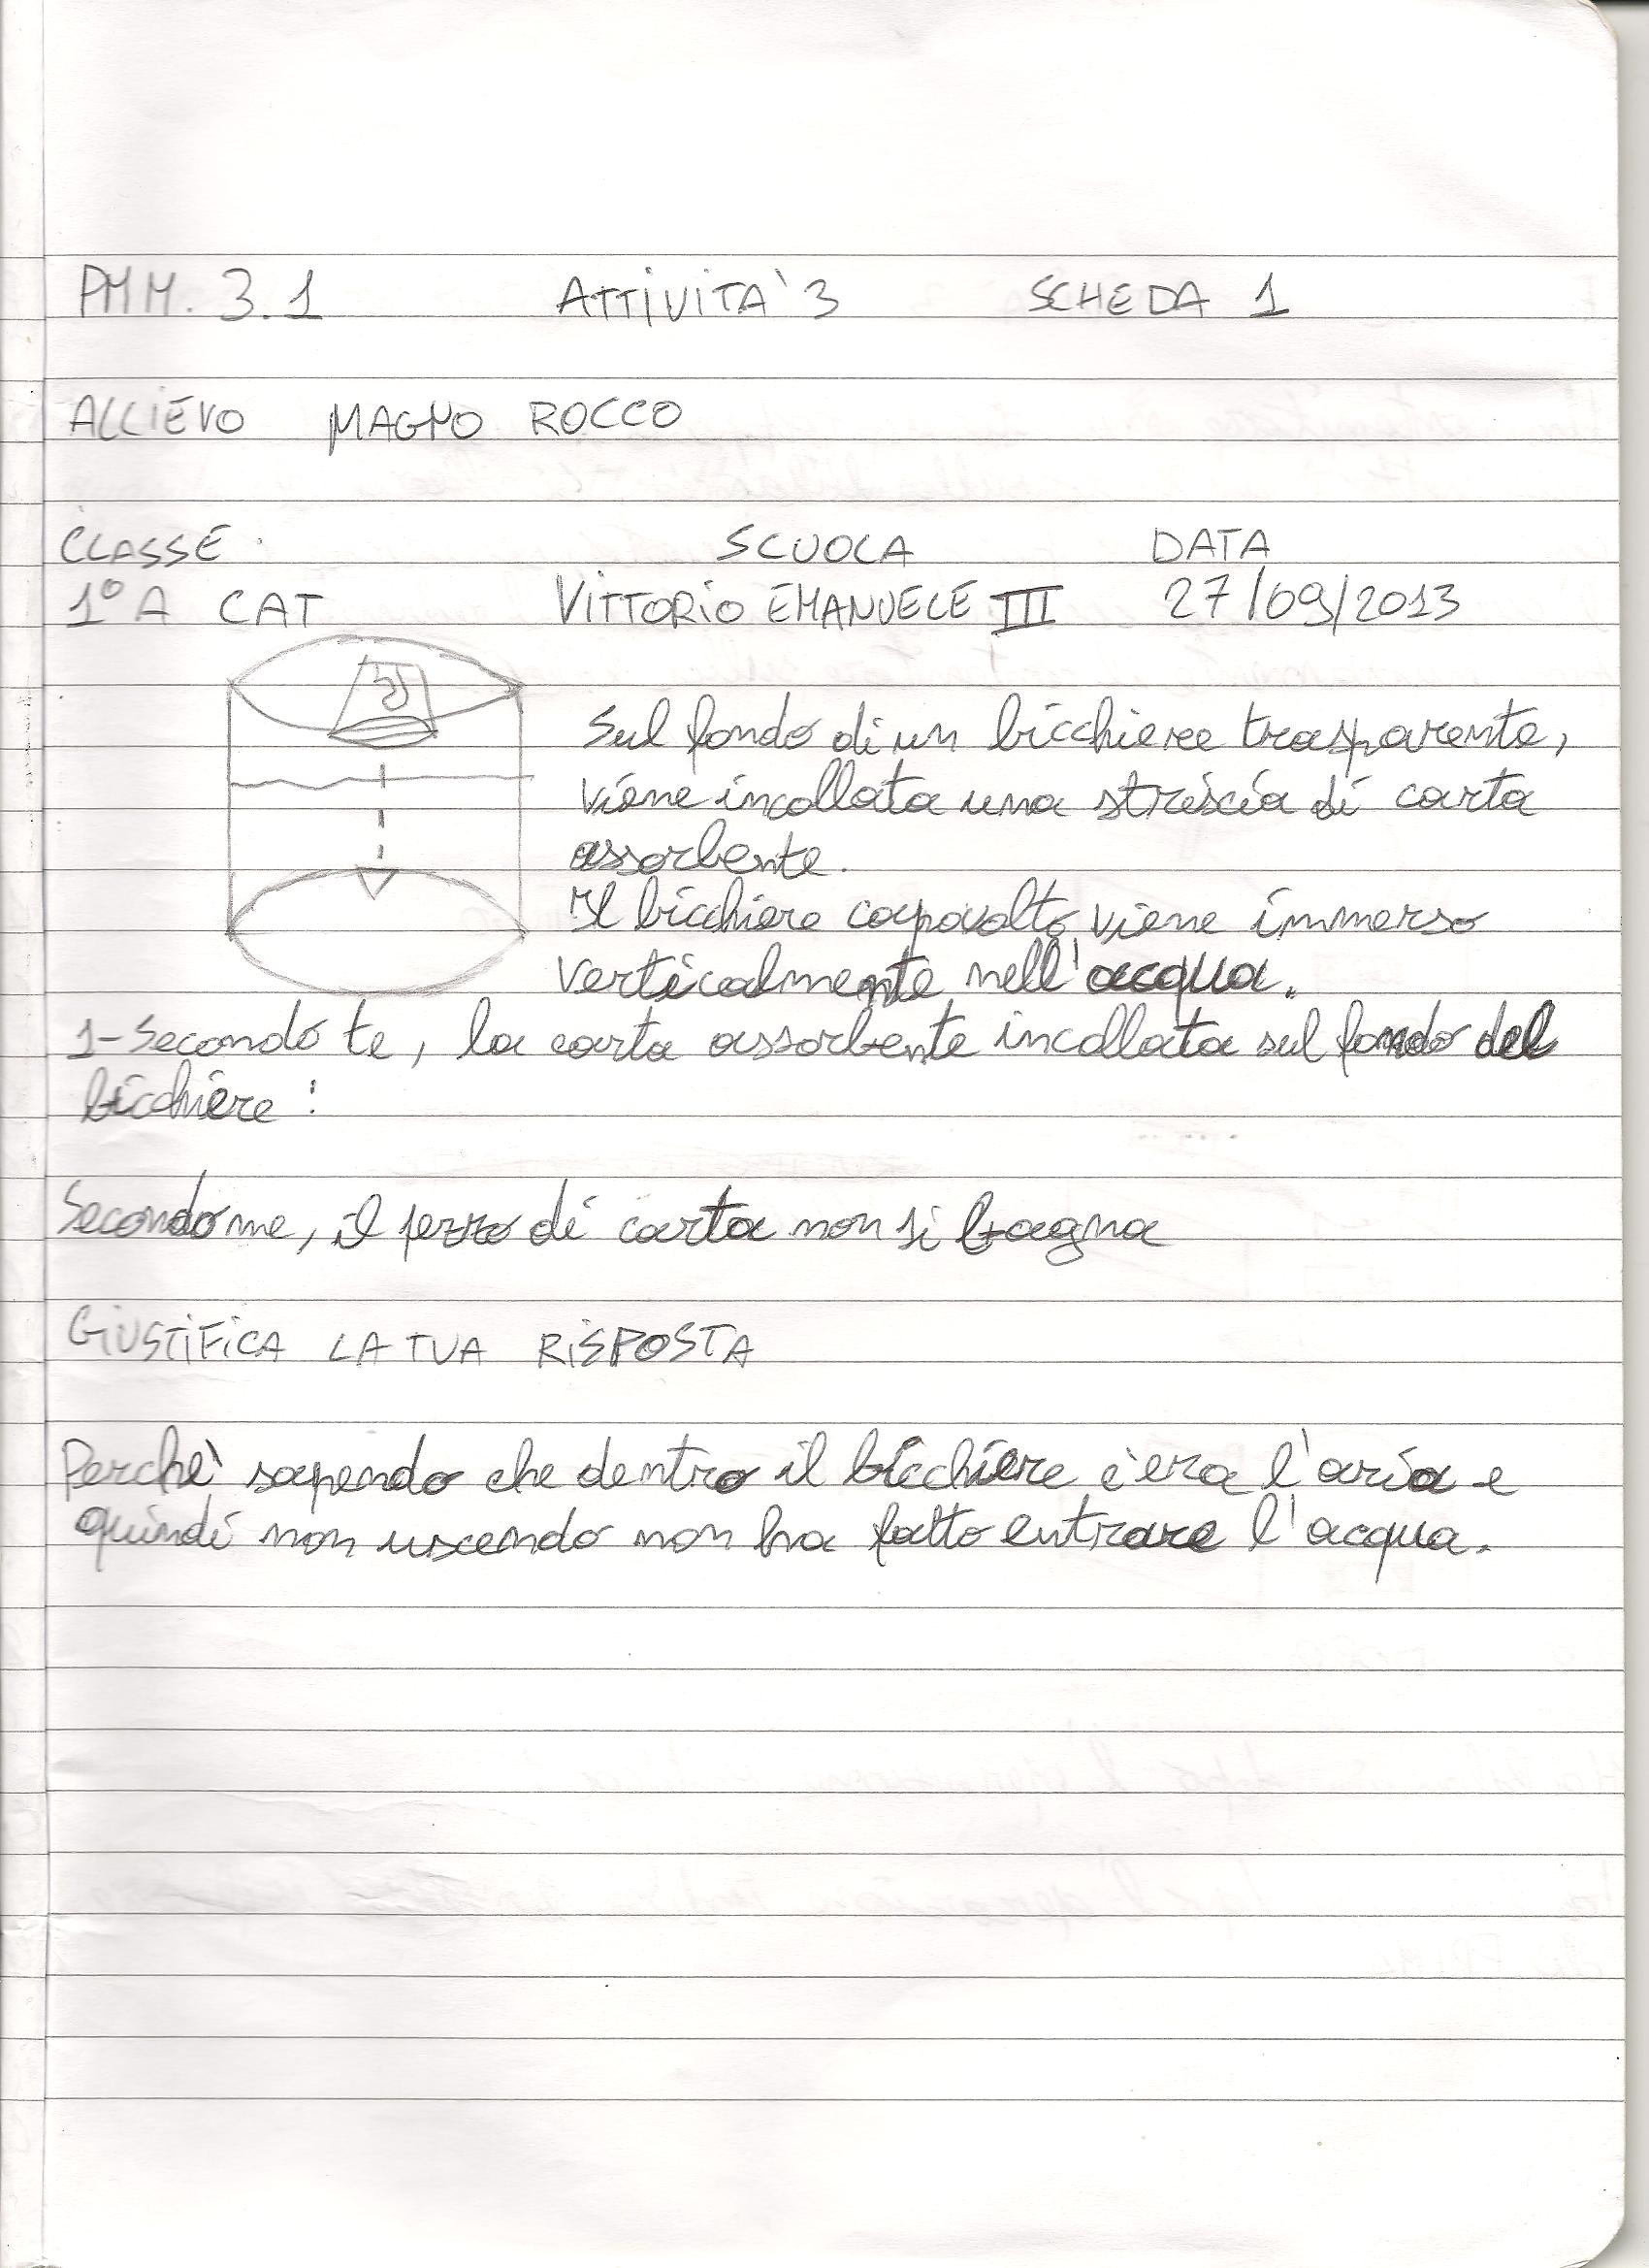 PMM. 3.1 ATTIVITA' 3 SCHEDA 1
ALLIEVO MAGNO ROCCO
CLASSE SCUOLA DATA
1° A CAT VITTORIO EMANUELE III 27/09/2013
Sul fondo di un bicchiere trasparente,
viene incollata una striscia di carta
assorbente.
Il bicchiere capovolto viene immerso
verticalmente nell'acqua.
1-Secondo te, la carta assorbente incollata sul fondo del
bicchiere :
Secondo me, il pezzo di carta non si bagna
GIUSTIFICA LA TUA RISPOSTA
Perche' sapendo che dentro il bicchiere c'era l'aria e
quindi non uscendo non ha fatto entrare l'acqua.